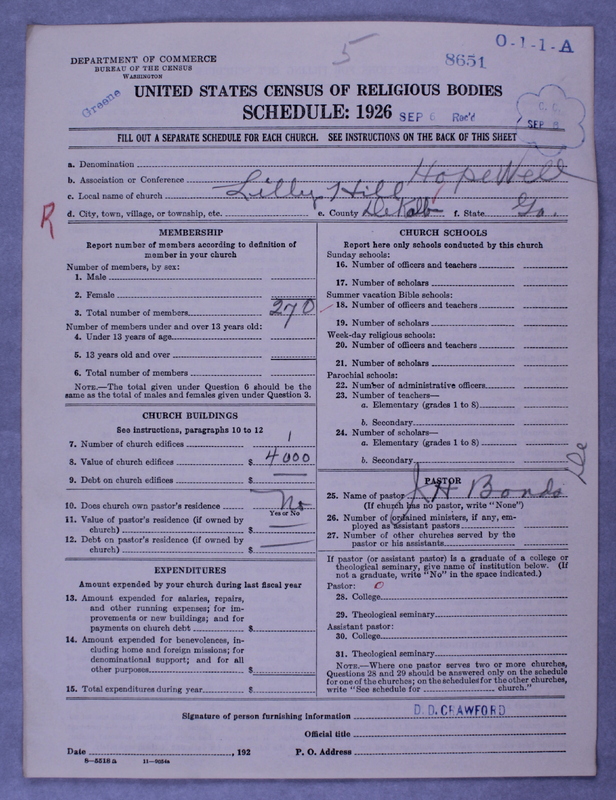 5
8651
O-1-1-A
DEPARTMENT OF COMMERCE
BUREAU OF THE CENSUS
WASHINGTON
Greene
UNITED STATES CENSUS OF RELIGIOUS BODIES
SCHEDULE: 1926
SEP 6 Rec'd
C. C.
SEP 8
FILL OUT A SEPARATE SCHEDULE FOR EACH CHURCH. SEE INSTRUCTIONS ON THE BACK OF THIS SHEET
a. Denomination
b. Association or Conference Hopewell
c. Local name of church Lilly Hill
d. City, town, village, or township, etc. e. County DeKalb f. State Ga.
R
MEMBERSHIP
Report number of members according to definition of
member in your church
Number of members, by sex:
1. Male
2. Female
3. Total number of members 270
Number of members under and over 13 years old:
4. Under 13 years of age
5. 13 years old and over
6. Total number of members
NOTE.—The total given under Question 6 should be the
same as the total of males and females given under Question 3.
CHURCH BUILDINGS
See instructions, paragraphs 10 to 12
7. Number of church edifices 1
8. Value of church edifices $ 4000
9. Debt on church edifices $ —
10. Does church own pastor's residence No
Yes or No
11. Value of pastor's residence (if owned by
church) $ —
12. Debt on pastor's residence (if owned by
church) $ —
EXPENDITURES
Amount expended by your church during last fiscal year
13. Amount expended for salaries, repairs,
and other running expenses; for im-
provements or new buildings; and for
payments on church debt $
14. Amount expended for benevolences, in-
cluding home and foreign missions; for
denominational support; and for all
other purposes $
15. Total expenditures during year $
CHURCH SCHOOLS
Report here only schools conducted by this church
Sunday schools:
16. Number of officers and teachers
17. Number of scholars
Summer vacation Bible schools:
18. Number of officers and teachers
19. Number of scholars
Week-day religious schools:
20. Number of officers and teachers
21. Number of scholars
Parochial schools:
22. Number of administrative officers
23. Number of teachers—
a. Elementary (grades 1 to 8)
b. Secondary
24. Number of scholars—
a. Elementary (grades 1 to 8)
b. Secondary
PASTOR
25. Name of pastor J H Bonds
(If church has no pastor, write "None")
26. Number of ordained ministers, if any, em-
ployed as assistant pastors
27. Number of other churches served by the
pastor or his assistants
If pastor (or assistant pastor) is a graduate of a college or
theological seminary, give name of institution below. (If
not a graduate, write "No" in the space indicated.)
Pastor: 0
28. College
29. Theological seminary
Assistant pastor:
30. College
31. Theological seminary
NOTE.—Where one pastor serves two or more churches,
Questions 28 and 29 should be answered only on the schedule
for one of the churches; on the schedules for the other churches,
write "See schedule for church."
Signature of person furnishing information D. D. CRAWFORD
Official title
Date , 192 P. O. Address
8-5518 a 11-9054a